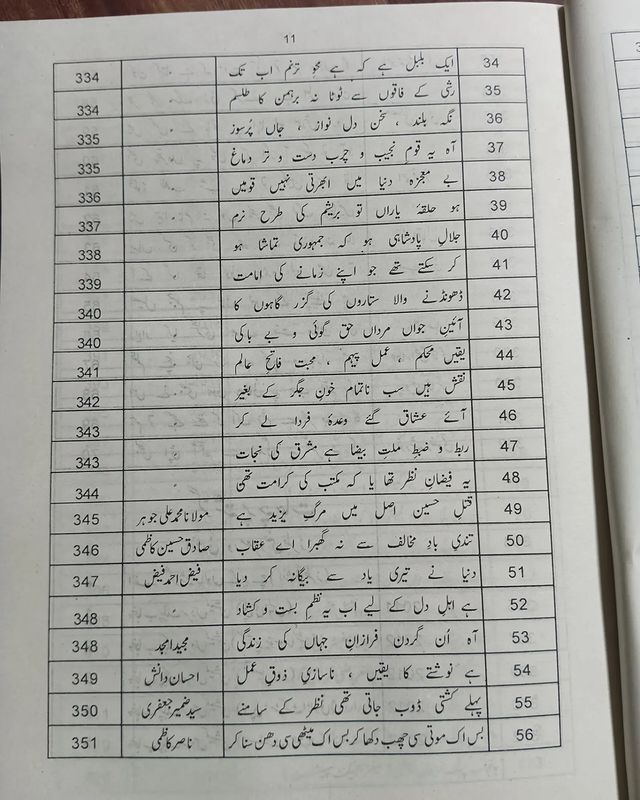 11
34 ایک بلبل ہے کہ ہے محو ترنم اب تک 〃 334
35 رشی کے فاقوں سے ٹوٹا نہ برہمن کا طلسم 〃 334
36 نگہ بلند ، سخن دل نواز ، جاں پُرسوز 〃 335
37 آہ یہ قوم نجیب و چرب دست و تر دماغ 〃 335
38 بے معجزہ دنیا میں ابھرتی نہیں قومیں 〃 336
39 ہو حلقۂ یاراں تو بریشم کی طرح نرم 〃 337
40 جلالِ پادشاہی ہو کہ جمہوری تماشا ہو 〃 338
41 کر سکتے تھے جو اپنے زمانے کی امامت 〃 339
42 ڈھونڈنے والا ستاروں کی گزر گاہوں کا 〃 340
43 آئینِ جواں مرداں حق گوئی و بے باکی 〃 340
44 یقیں محکم ، عمل پیہم ، محبت فاتحِ عالم 〃 341
45 نقش ہیں سب ناتمام خونِ جگر کے بغیر 〃 342
46 آئے عشاق گئے وعدۂ فردا لے کر 〃 343
47 ربط و ضبطِ ملت بیضا ہے مشرق کی نجات 〃 343
48 یہ فیضانِ نظر تھا یا کہ مکتب کی کرامت تھی 〃 344
49 قتلِ حسین اصل میں مرگِ یزید ہے مولانا محمد علی جوہر 345
50 تندیِ بادِ مخالف سے نہ گھبرا اے عقاب صادق حسین کاظمی 346
51 دنیا نے تیری یاد سے بیگانہ کر دیا فیض احمد فیض 347
52 ہے اہلِ دل کے لیے اب یہ نظمِ بست و کشاد 〃 348
53 آہ اُن گردن فرازانِ جہاں کی زندگی مجید امجد 348
54 ہے نوشتے کا یقیں ، ناسازیِ ذوقِ عمل احسان دانش 349
55 پہلے کشتی ڈوب جاتی تھی نظر کے سامنے سید ضمیر جعفری 350
56 بس اک موتی سی چھب دکھا کر بس اک میٹھی سی دھن سنا کر ناصر کاظمی 351